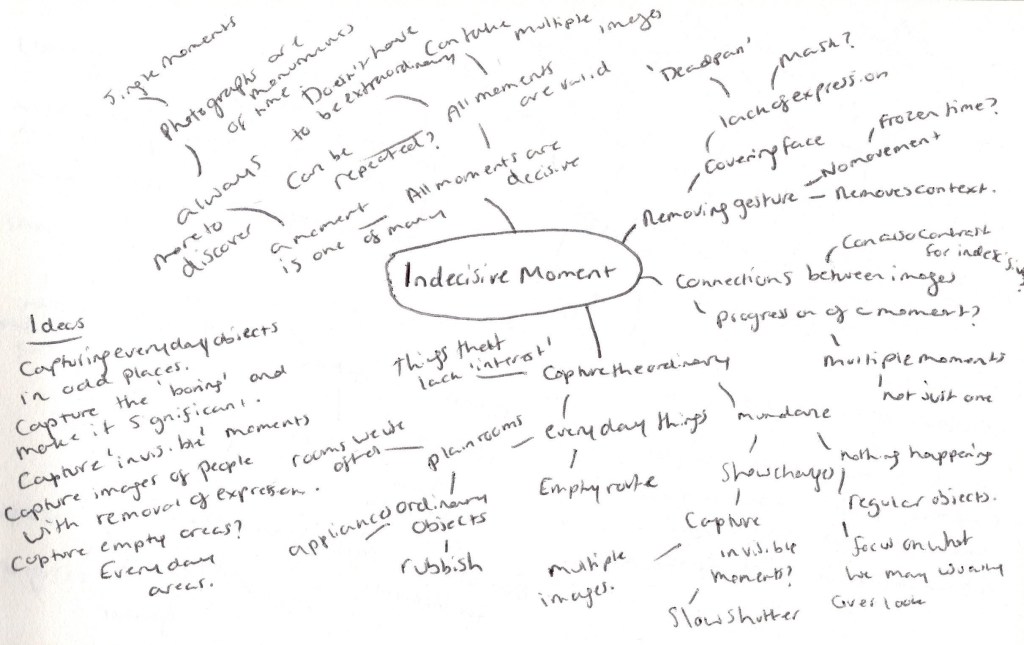 Single moments
photographs are
monuments
of time
Doesn't have
to be extraordinary
Can take multiple images
All moments
are valid
Can be
repeated?
always
more to
discover
a moment
is one of many
All moments are
decisive
Indecisive Moment
'Deadpan'
Mask?
lack of expression
Covering face
Removing gesture
No movement
Frozen time?
Removes context.
Connections between images
Can also contrast
for indecisive
progression of a moment?
multiple moments
not just one
Capture the ordinary
things that
lack 'interest'
everyday things
Empty route
plain rooms
rooms we use
often
ordinary
objects
appliances
rubbish
mundane
nothing happening
regular objects.
focus on what
we may usually
over look
Show changes
Capture
invisible
moments?
multiple
images.
Slow shutter
Ideas
Capturing everyday objects
in odd places.
Capture the 'boring' and
make it significant.
Capture 'invisible' moments
Capture images of people
with removal of expression.
Capture empty areas?
Everyday
areas.